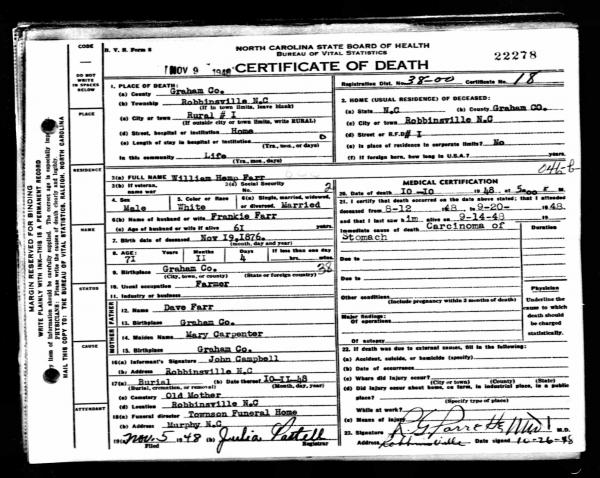 CODE
N. C.
B. V. S. Form 8
NORTH CAROLINA STATE BOARD OF HEALTH
BUREAU OF VITAL STATISTICS
NOV 9 1948
CERTIFICATE OF DEATH
22278
DO NOT
WRITE
IN SPACES
BELOW
Registration Dist. No. 38-00 Certificate No. 18
1. PLACE OF DEATH:
(a) County Graham Co.
(b) Township Robbinsville N.C
(If in town limits, leave blank)
(c) City or town Rural # I
(If outside city or town limits, write RURAL)
(d) Street, hospital or institution Home
(e) Length of stay in hospital or institution
(Yrs., mos., or days)
In this community Life
(Yrs., mos., days)
2. HOME (USUAL RESIDENCE) OF DECEASED:
(a) State N.C (b) County Graham CO.
(c) City or town Robbinsville N.C
(d) Street or R.F.D # I
(e) Is place of residence in corporate limits? No
(f) If foreign born, how long in U.S.A.? yrs.
046-b
PLACE
RESIDENCE
NAME
STATUS
CAUSE
ATTENDANT
MARGIN RESERVED FOR BINDING
WRITE PLAINLY WITH INK—THIS IS A PERMANENT RECORD
MAIL THIS COPY TO: THE BUREAU OF VITAL STATISTICS, RALEIGH, NORTH CAROLINA
3(a) FULL NAME William Hemp Farr
3(b) If veteran,
name war
3(c) Social Security
No.
2
4. Sex
Male
5. Color or Race
White
6(a) Single, married, widowed,
or divorced. Married
6(b) Name of husband or wife Frankie Farr
(c) Age of husband or wife if alive 61
7. Birth date of deceased Nov 19,1876.
(month, day and year)
8. AGE: Years Months Days If less than one day
71 II 4 hrs. min.
9. Birthplace Graham Co. 38
(City, town, or county) (State or foreign country)
10. Usual occupation Farmer
11. Industry or business
FATHER
12. Name Dave Farr
13. Birthplace Graham Co.
MOTHER
14. Maiden Name Mary Carpenter
15. Birthplace Graham Co.
16(a) Informant's Signature John Campbell
(b) Address Robbinsville N.C
17(a) Burial (b) Date thereof IO-II-48
(Burial, cremation, or removal) (Month, day, year)
(c) Cemetery Old Mother
(d) Location Robbinsville N.C
18(a) Funeral director Townson Funeral Home
(b) Address Murphy N.C
19(a) Nov. 5 1948 (b) Julia
Filed Registrar
MEDICAL CERTIFICATION
20. Date of death IO-IO 1948. at 5:00 M.
21. I certify that death occurred on the date above stated; that I attended
deceased from 8-12 1948 to 9-20- 1948.
and that I last saw him alive on 9-14-48 19
Immediate cause of death Carcinoma of
Stomach
Duration
Due to
Due to
Other conditions
(Include pregnancy within 3 months of death)
Major findings:
Of operations
Of autopsy
Physician
Underline the
cause to which
death should
be charged
statistically.
22. If death was due to external causes, fill in the following:
(a) Accident, suicide, or homicide (specify)
(b) Date of occurrence
(c) Where did injury occur?
(City or town) (County) (State)
(d) Did injury occur about home, on farm, in industrial place, in a public
place?
(Specify type of place)
While at work?
(e) Means of injury
23. Signature M.D.
Address Robbinsville Date signed 10-26-48